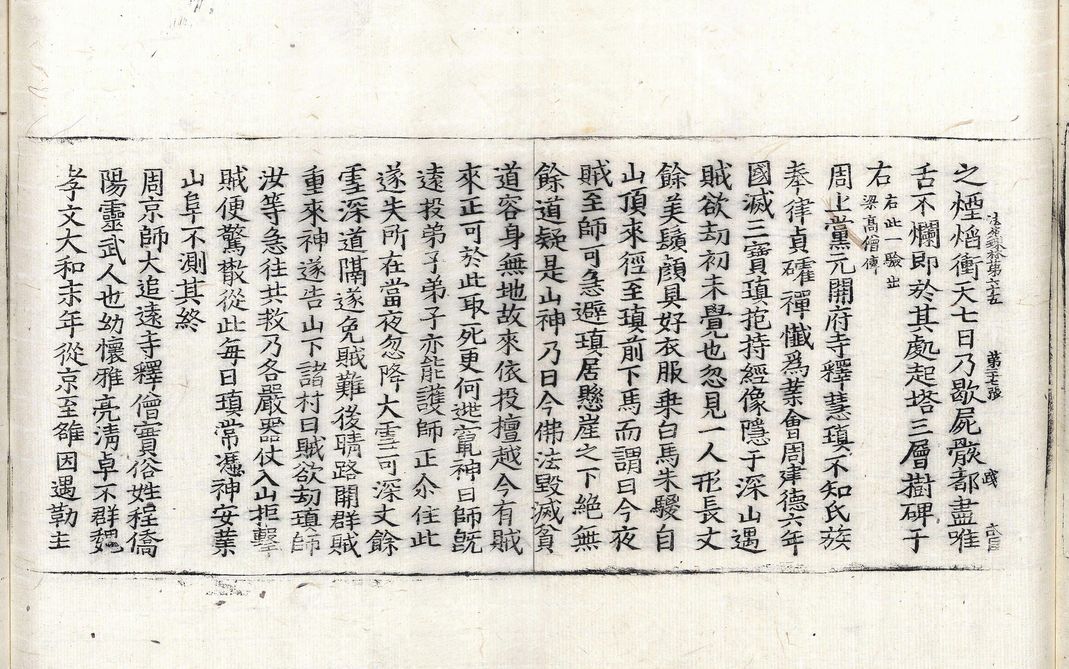 法苑珠林第六十五
之煙焰衝天七日乃歇屍骸都盡唯
舌不爛即於其處起塔三層樹碑于
右
右此一驗出
梁高僧傳
周上黨元開府寺釋慧瑱不知氏族
奉律貞確禪懺爲業會周建德六年
國滅三寶瑱抱持經像隱于深山遇
賊欲劫初未覺也忽見一人形長丈
餘美鬚顏具好衣服乗白馬朱騣自
山頂來徑至瑱前下馬而謂曰今夜
賊至師可急避瑱居懸崖之下絶無
餘道疑是山神乃曰今佛法毀滅貧
道容身無地故來依投檀越今有賊
來正可於此取死更何逃竄神曰師旣
遠投弟子弟子亦能護師正尒住此
遂失所在當夜忽降大雪可深丈餘
雪深道隔遂免賊難後晴路開群賊
重來神遂告山下諸村曰賊欲劫瑱師
汝等急往共救乃各嚴器仗入山拒擊
賊便驚散從此每日瑱常憑神安業
山阜不測其終
周京師大追遠寺釋僧實俗姓程僑
陽靈武人也幼懷雅亮淸卓不群魏
孝文大和末年從京至雒因遇勒主